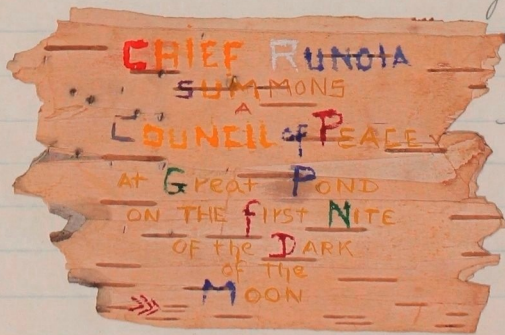 CHIEF RUNOIA
SUMMONS
A
COUNCIL of PEACE
AT Great POND
ON THE fIrst NITE
OF the DARK
of the
MOON